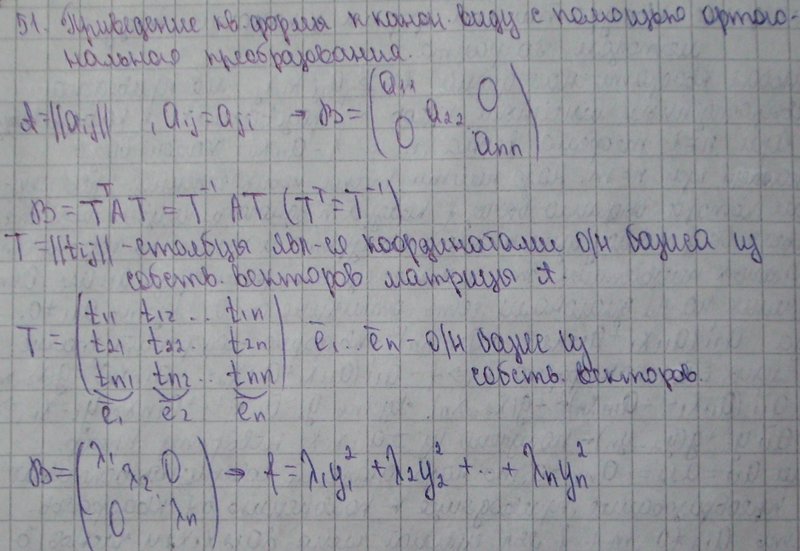 51. Приведение кв. формы к канон. виду с помощью ортого-
нального преобразования.
A=||aij|| , aij=aji → B= (a11 0 a22 0 ann)
B = TᵀAT = T⁻¹AT (Tᵀ=T⁻¹)
T=||tij|| - столбцы явл-ся координатами о/н базиса из
собств. векторов матрицы A.
T = (t11 t12 .. t1n
t21 t22 .. t2n
tn1 tn2 .. tnn)
ē1 ē2 ēn
ē1 .. ēn - о/н базис из
собств. векторов.
B= (λ1 λ2 0 0 λn) → f = λ1y1² + λ2y2² + .. + λnyn²